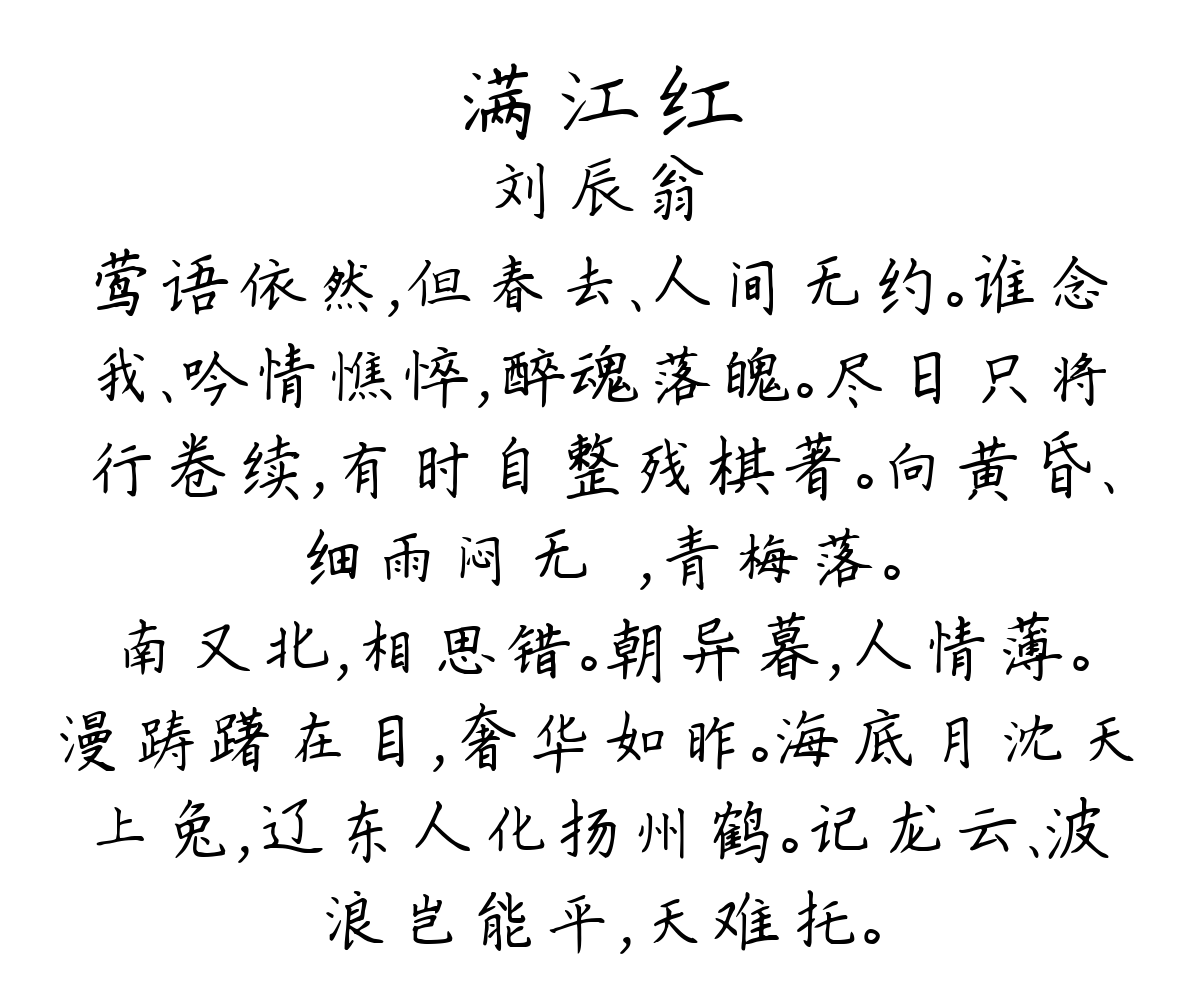 满江红
刘辰翁
莺语依然,但春去、人间无约。谁念
我、吟情憔悴,醉魂落魄。尽日只将
行卷续,有时自整残棋著。向黄昏、
细雨闷无 ,青梅落。
南又北,相思错。朝异暮,人情薄。
漫踌躇在目,奢华如昨。海底月沈天
上兔,辽东人化扬州鹤。记龙云、波
浪岂能平,天难托。